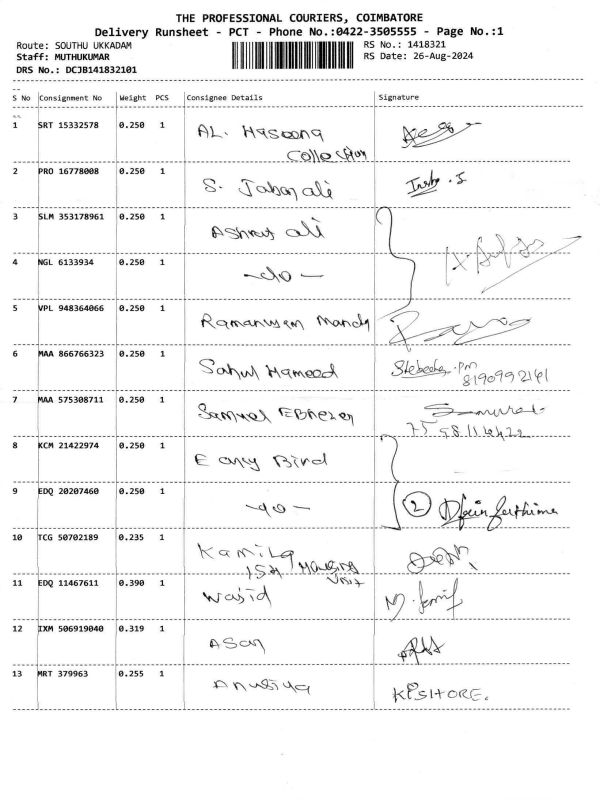 THE PROFESSIONAL COURIERS, COIMBATORE
Delivery Runsheet - PCT - Phone No.:0422-3505555 - Page No.:1
Route: SOUTHU UKKADAM
RS No.: 1418321
Staff: MUTHUKUMAR
RS Date: 26-Aug-2024
DRS No.: DCJB141832101
S No Consignment No Weight PCS Consignee Details Signature
1 SRT 15332578 0.250 1 AL. Haseena
Collection
2 PRO 16778008 0.250 1 S. Jabar ali
3 SLM 353178961 0.250 1 Ashraf ali
4 NGL 6133934 0.250 1 -do-
5 VPL 948364066 0.250 1 Ramanujam
6 MAA 866766323 0.250 1 Sahul Hameed
8190992141
7 MAA 575308711 0.250 1 Samuel Ebnezer
8 KCM 21422974 0.250 1 Eary Bird
9 EDQ 20207460 0.250 1 -do- 2
10 TCG 50702189 0.235 1 Kamila
Housing Unit
11 EDQ 11467611 0.390 1 Wajid
12 IXM 506919040 0.319 1 Asan
13 MRT 379963 0.255 1 Anusiya KISHORE.